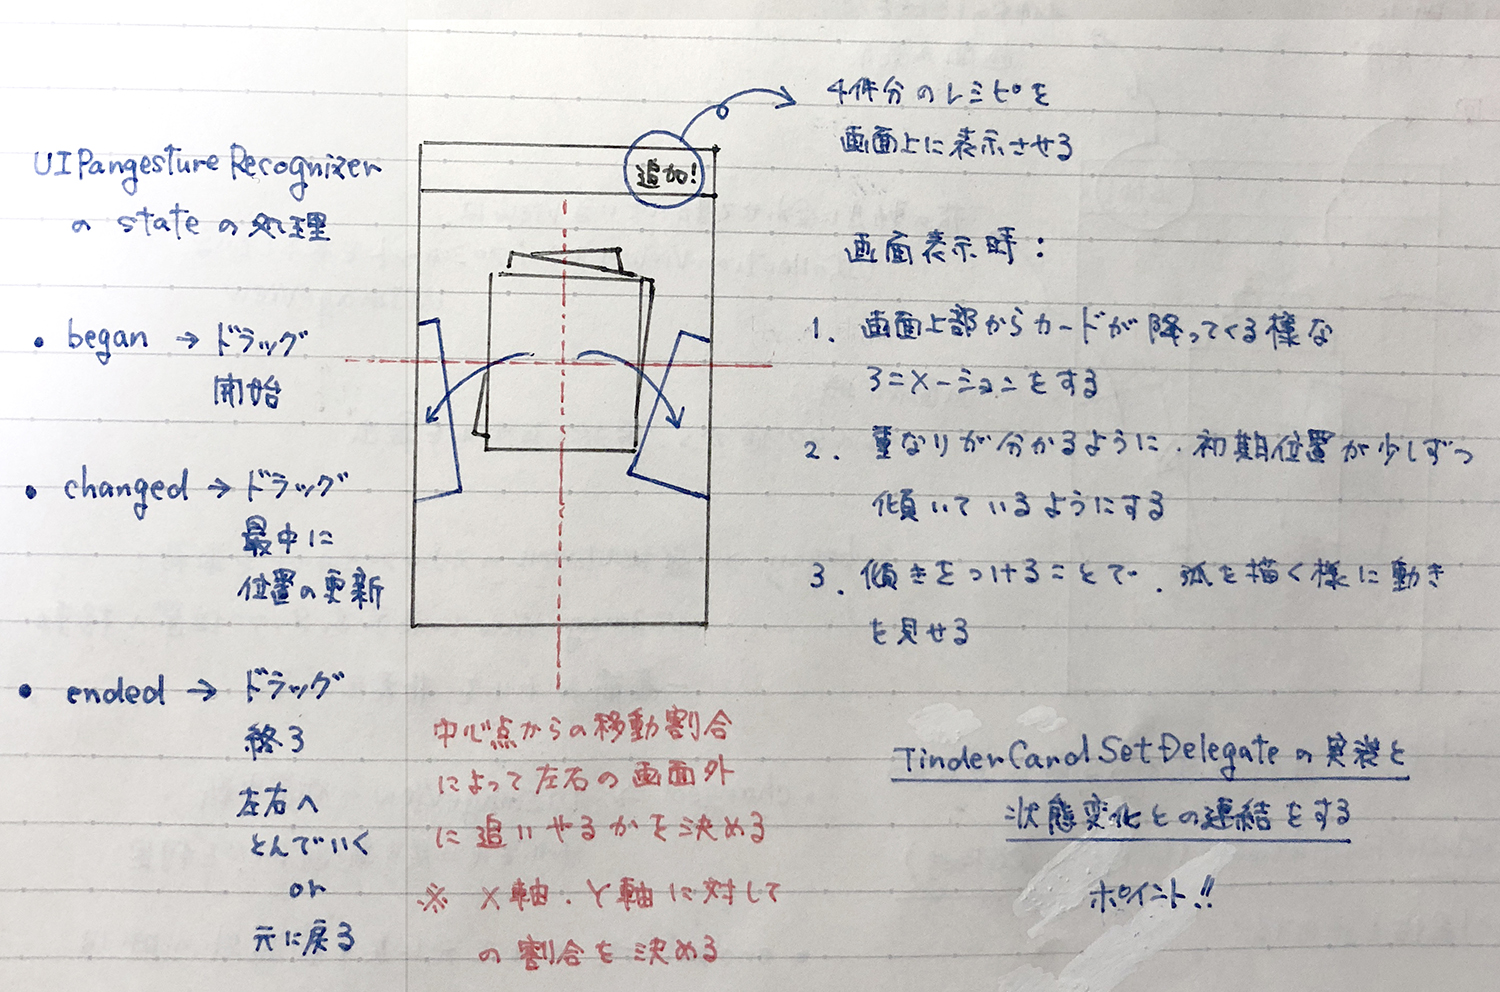 UIPangesture Recognizer
の stateの処理
• began → ドラッグ
開始
• changed → ドラッグ
最中に
位置の更新
• ended → ドラッグ
終了
左右へ
とんでいく
or
元に戻る
追加!
4件分のレシピを
画面上に表示させる
画面表示時:
1. 画面上部からカードが降ってくる様な
アニメーションをする
2. 重なりが分かるように、初期位置が少しずつ
傾いているようにする
3. 傾きをつけることで、弧を描く様に動き
を見せる
中心点からの移動割合
によって左右の画面外
に追いやるかを決める
※ X軸、Y軸に対して
の割合を決める
TinderCardSetDelegateの実装と
状態変化との連結をする
ポイント!!